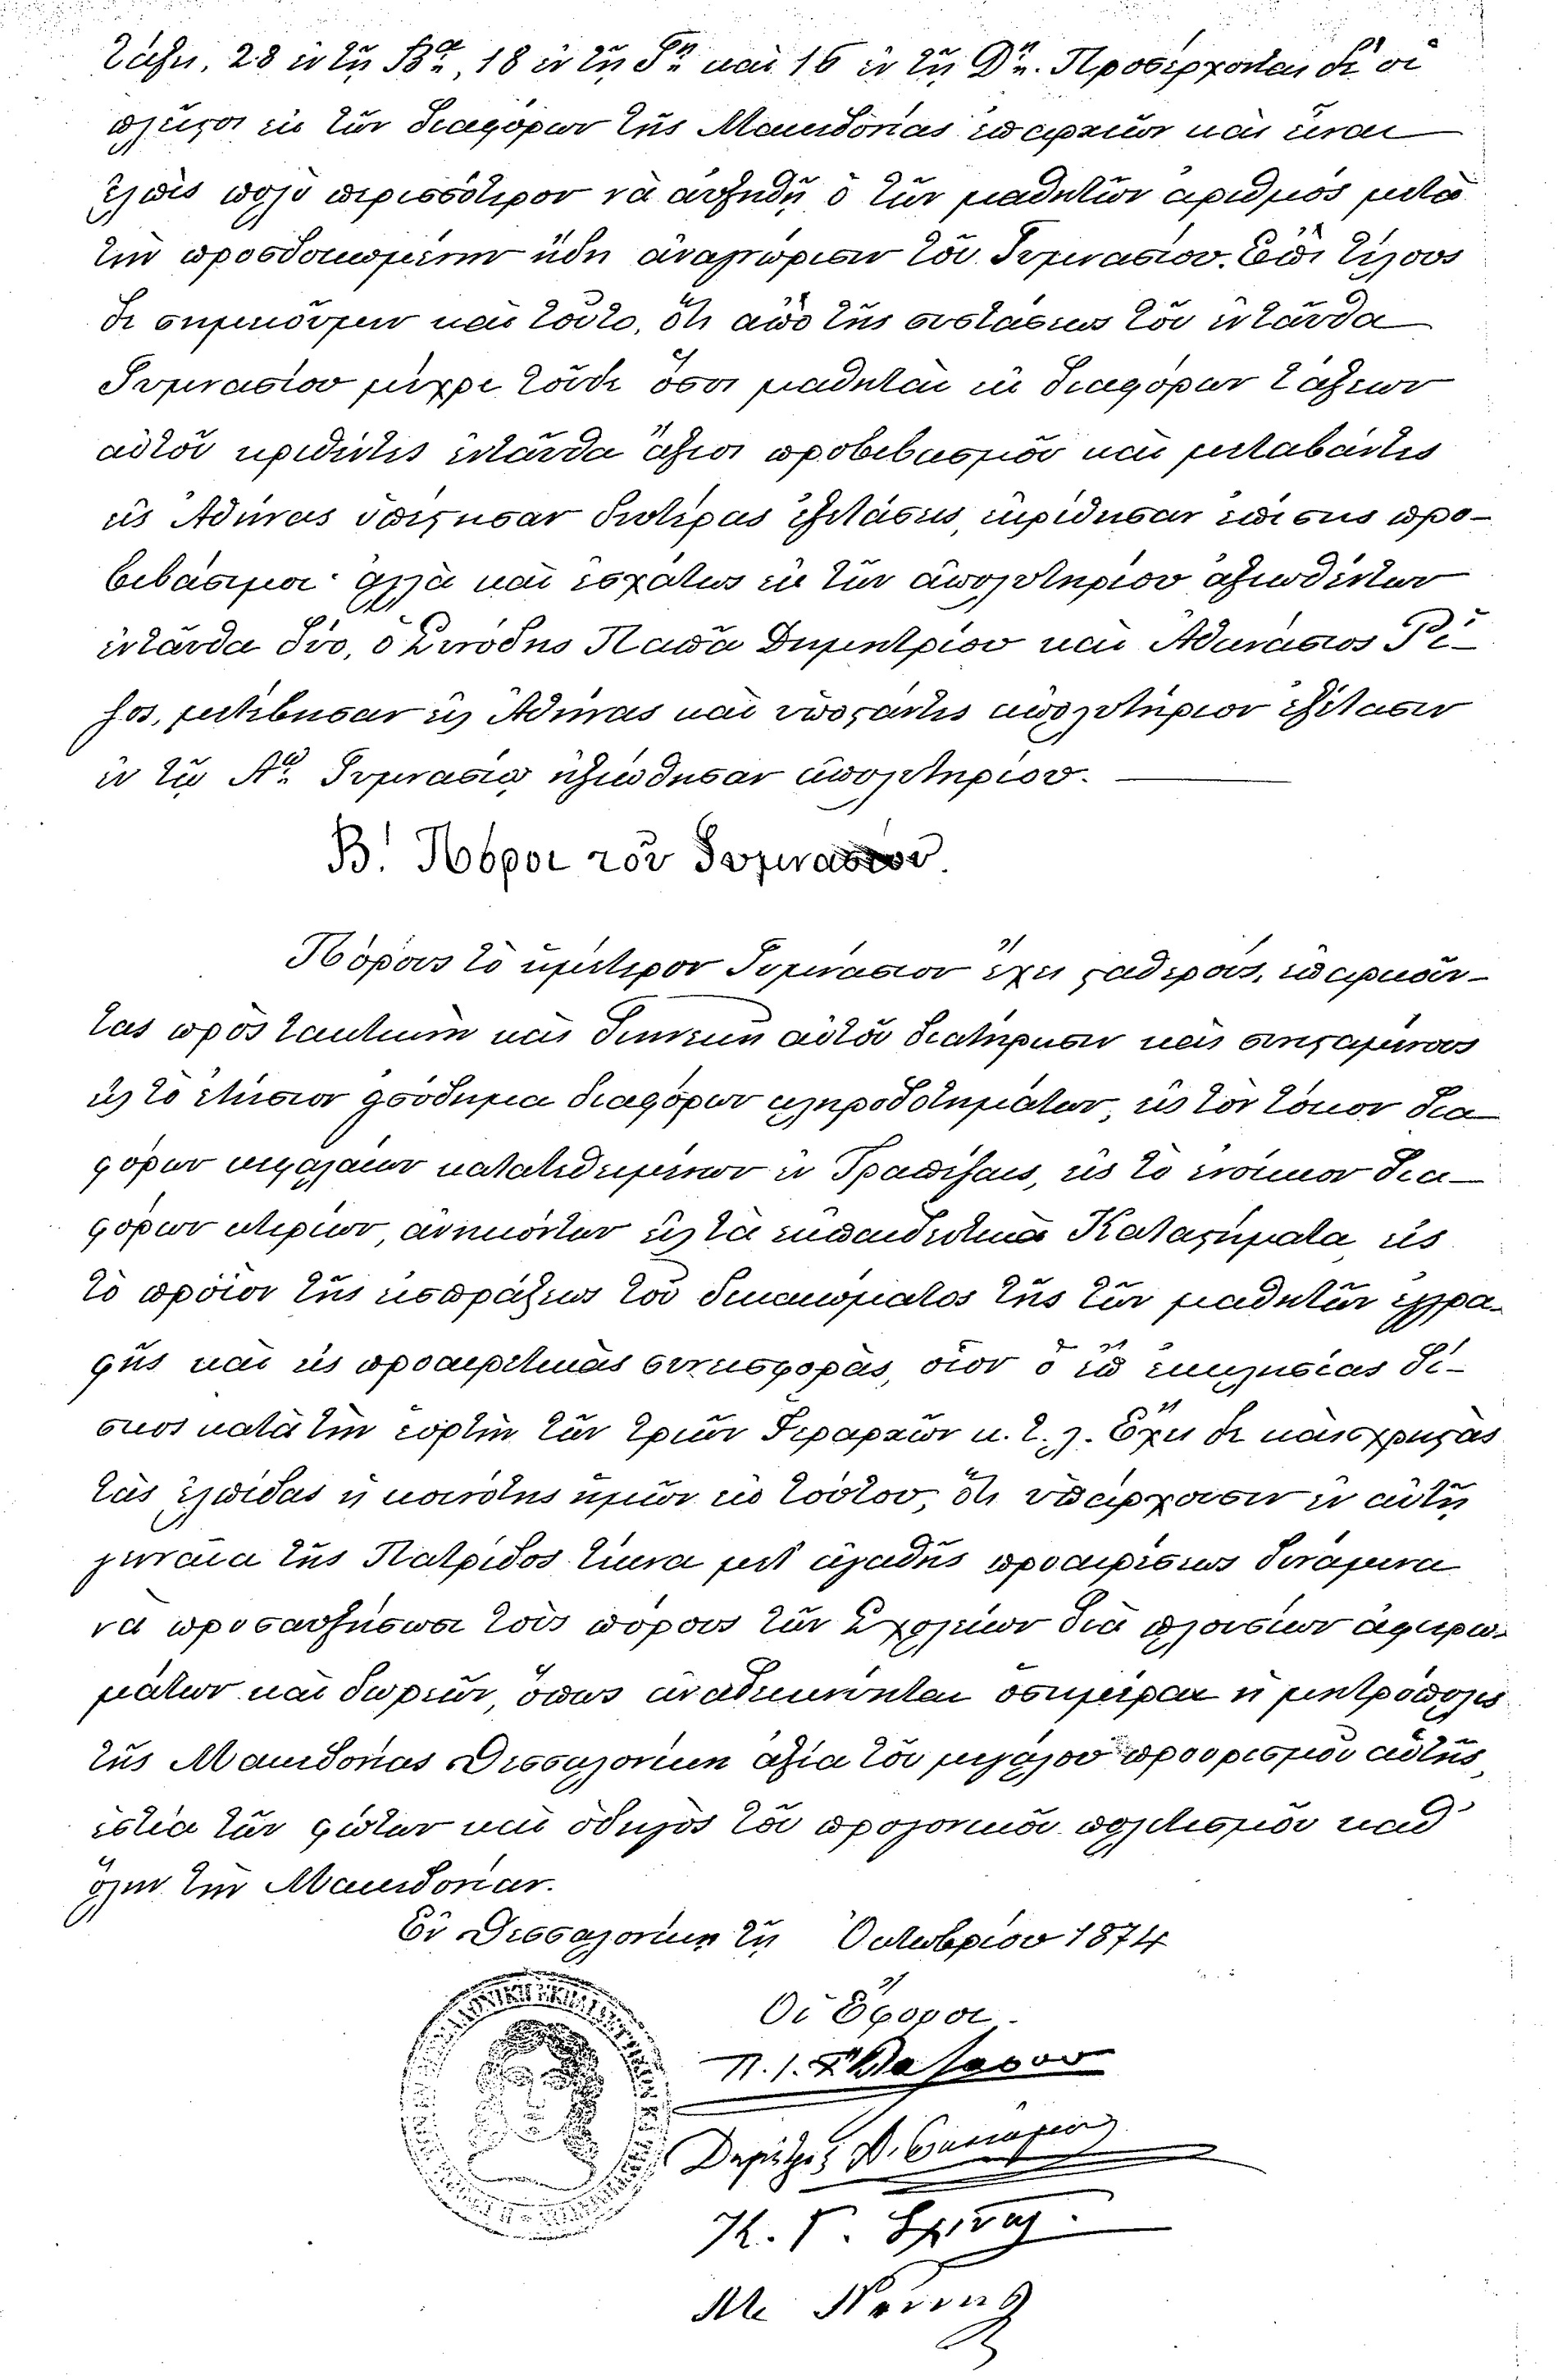 τάξει, 28 ἐν τῇ Βᾳ, 18 ἐν τῇ Γῃ καὶ 16 ἐν τῇ Δῃ. Προσέρχονται δὲ οἱ
πλεῖστοι ἐκ τῶν διαφόρων τῆς Μακεδονίας ἐπαρχιῶν καὶ εἶναι
ἐλπὶς πολὺ περισσότερον νὰ αὐξηθῇ ὁ τῶν μαθητῶν ἀριθμὸς μετὰ
τὴν προσδοκωμένην ἤδη ἀναγνώρισιν τοῦ Γυμνασίου. Ἐπὶ τέλους
δὲ σημειοῦμεν καὶ τοῦτο, ὅτι ἀπὸ τῆς συστάσεως τοῦ ἐνταῦθα
Γυμνασίου μέχρι τοῦδε ὅσοι μαθηταὶ ἐκ διαφόρων τάξεων
αὐτοῦ κριθέντες ἐνταῦθα ἄξιοι προβιβασμοῦ καὶ μεταβάντες
εἰς Ἀθήνας ὑπέστησαν δευτέρας ἐξετάσεις, ἐκρίθησαν ἐπίσης προ-
βιβάσιμοι· ἀλλὰ καὶ ἐσχάτως ἐκ τῶν ἀπολυτηρίου ἀξιωθέντων
ἐνταῦθα δύο, ὁ Συνόδης Παπᾶ Δημητρίου καὶ Ἀθανάσιος Ῥί-
ζος, μετέβησαν εἰς Ἀθήνας καὶ ὑποστάντες ἀπολυτήριον ἐξέτασιν
ἐν τῷ Αῳ Γυμνασίῳ ἠξιώθησαν ἀπολυτηρίου.
Β! Πόροι τοῦ Γυμνασίου.
Πόρους τὸ ἡμέτερον Γυμνάσιον ἔχει σταθερούς, ἐπαρκοῦν-
τας πρὸς τακτικὴν καὶ διηνεκῆ αὐτοῦ διατήρησιν καὶ συνισταμένους
εἰς τὸ ἐτήσιον εἰσόδημα διαφόρων κληροδοτημάτων, εἰς τὸν τόκον δια
φόρων κεφαλαίων κατατεθειμένων ἐν Τραπέζαις, εἰς τὸ ἐνοίκιον δια-
φόρων κτιρίων, ἀνηκόντων εἰς τὰ ἐκπαιδευτικὰ Καταστήματα, εἰς
τὸ προϊὸν τῆς εἰσπράξεως τοῦ δικαιώματος τῆς τῶν μαθητῶν ἐγγρα-
φῆς καὶ εἰς προαιρετικὰς συνεισφοράς, οἷον ὁ ἐπ' ἐκκλησίας δί-
σκος κατὰ τὴν ἑορτὴν τῶν τριῶν Ἱεραρχῶν κ. τ. λ. Ἔχει δὲ καὶ χρηστὰς
τὰς ἐλπίδας ἡ κοινότης ἡμῶν ἐκ τούτου, ὅτι ὑπάρχουσιν ἐν αὐτῇ
γενναῖα τῆς Πατρίδος τέκνα μετ' ἀγαθῆς προαιρέσεως δυνάμενα
νὰ προσαυξήσωσι τοὺς πόρους τῶν Σχολείων διὰ πλουσίων ἀφιερω-
μάτων καὶ δωρεῶν, ὅπως ἀναδεικνύηται ὁσημέραι ἡ μητρόπολις
τῆς Μακεδονίας Θεσσαλονίκη ἀξία τοῦ μεγάλου προορισμοῦ αὐτῆς,
ἑστία τῶν φώτων καὶ ὁδηγὸς τοῦ προγονικοῦ πολιτισμοῦ καθ'
ὅλην τὴν Μακεδονίαν.
Ἐν Θεσσαλονίκῃ τῇ Ὀκτωβρίου 1874
Οἱ Ἔφοροι
Π. Ι.
Δημήτριος
Κ. Γ.